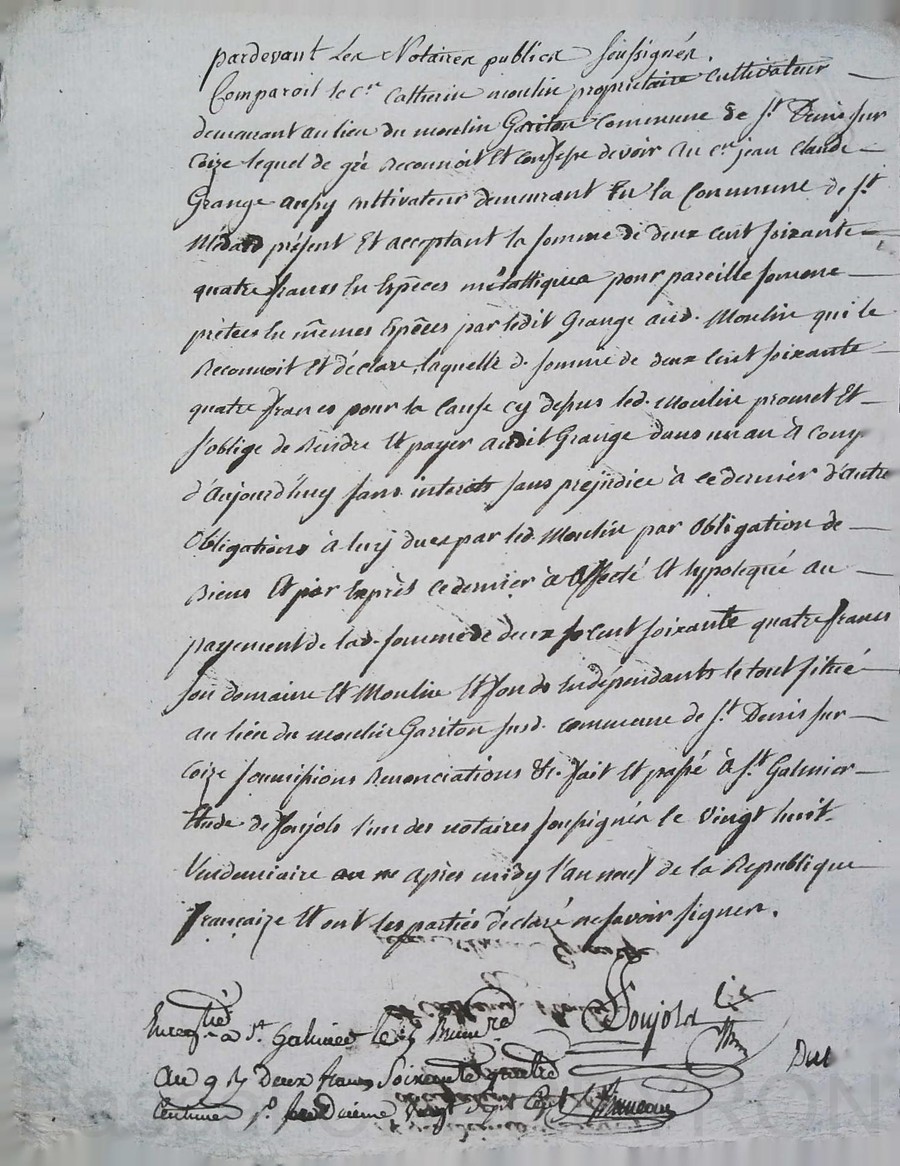 pardevant Les Notaires publics soussignés.
Comparoit le c.en Catherin moulin proprietaire cultivateur
demeurant au lieu du moulin Gariton commune de S.t Denis sur
Coize lequel de gré reconnoit et confesse devoir au c.en jean claude
Grange aussy cultivateur demeurant En la Commune de S.t
Médard présent Et acceptant la somme de deux cent soixante
quatre francs En Espèces métalliques pour pareille somme
pretées En mêmes Espèces par ledit Grange aud. Moulin qui le
Reconnoit Et déclare, laquelle d. somme de deux Cent soixante
quatre francs pour la Cause cy dessus led. Moulin promet Et
s'oblige de Rendre Et payer audit Grange dans un an à Comp.
d'Aujourd'huy sans interets sans prejudice à ce dernier d'autre
Obligations à luy dues par led. Moulin par Obligation de
Biens Et par Exprès ce dernier à Affecté Et hypotequé au
payement de lad. somme de deux cent soixante quatre francs
son domaine Et Moulin Et fonds Indépendants le tout situé
au lieu du moulin Gariton susd. commune de S.t Denis sur
Coize soumissions Renonciations &c. fait Et passé à S.t Galmier
Etude de Soujols l'un des notaires soussignés le vingt huit
Vendemiaire après midy l'an neuf de la Republique
française Et ont les parties déclaré ne savoir signer.
Soujols
Enreg.tré a S.t Galmier le
an 9 Deux francs Soixante quatre
Centimes